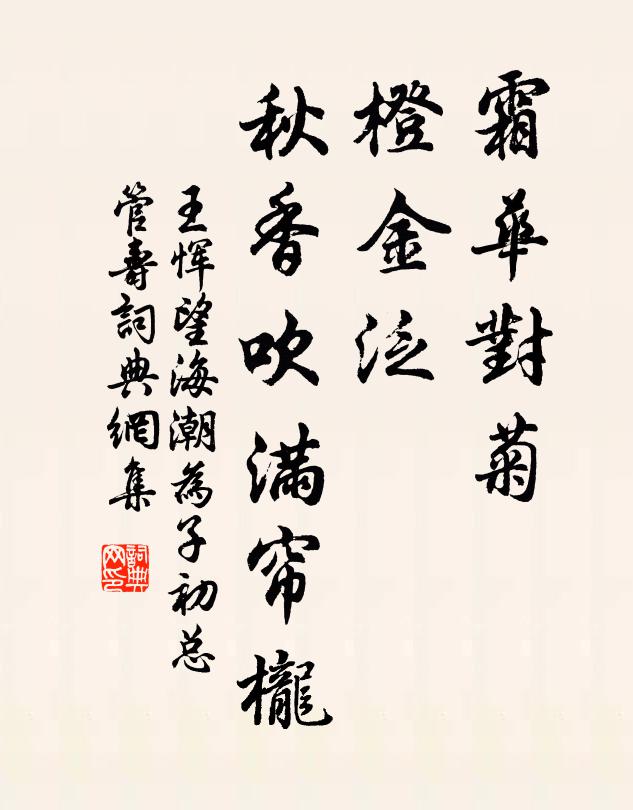 霜華對菊
橙金泛
秋香吹滿帘櫳
王惲望海潮為子初总
管壽詞典網集
詞典网印